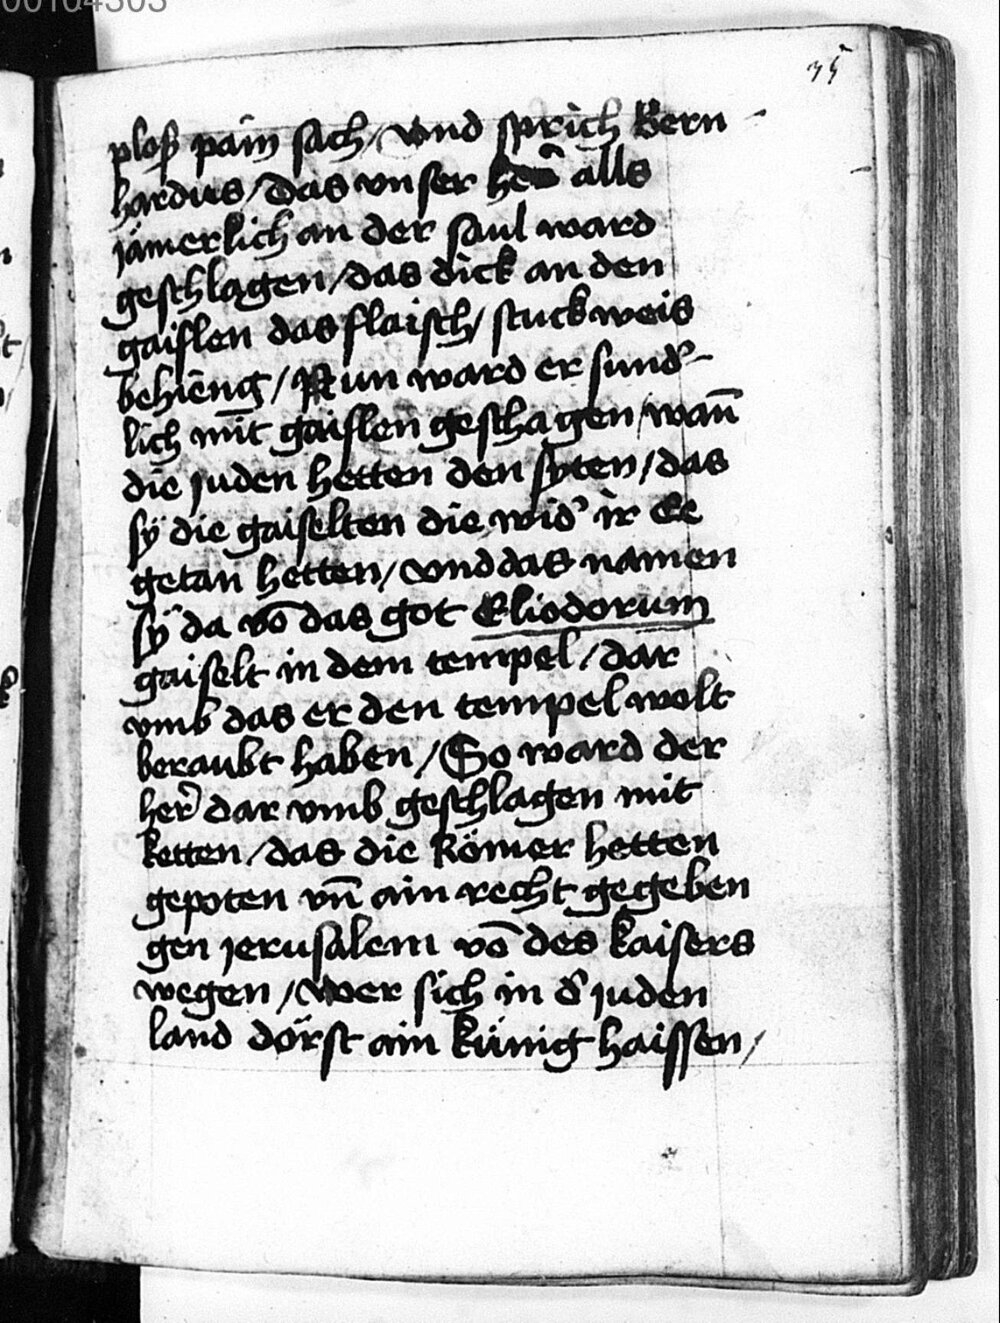 35
ploß pain sach / Vnd sprich Bern-
hardus / Das vnser her̄ alls
jämerlich an der saul ward
geschlagen / das dick an den
gaislen das flaisch / stuckweis
behieng / Nun ward er sund̕-
lich mit gaislen geschagen / wan̄
die juden hetten den syten / das
sÿ die gaiselten die wid̕ ir Ee
getan hetten / vnd das namen
sÿ da vō das got Eliodorum
gaiselt in dem tempel / dar
vmb das er den tempel wolt
beraubt haben / So ward der
her̄ dar vmb geschlagen mit
ketten / das die Römer hetten
gepoten vn̄ ain recht gegeben
gen jerusalem vō des kaisers
wegen / wer sich in d̕ juden
land dörst ain künig haissen /